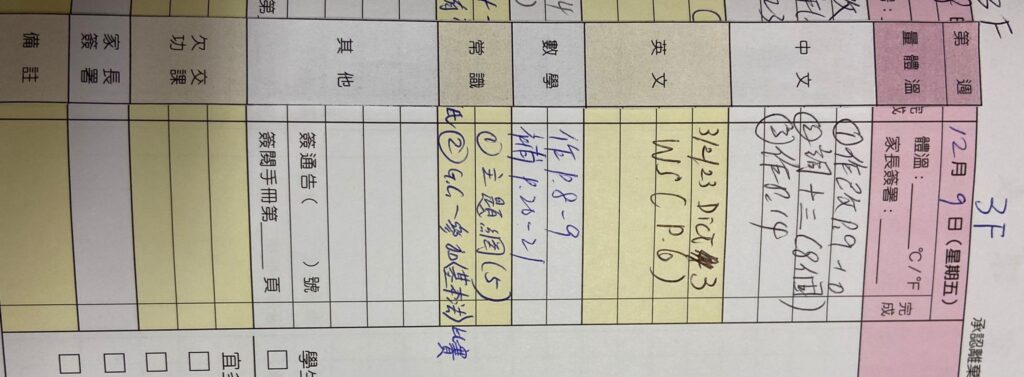 3F
第 週
量體溫
中文
英文
數學
常識
其他
欠交功課
家長簽署
備註
3F
12月9日(星期五)
體溫:____°C/°F
家長簽署:
完成
①作改P.9,10
②詞十三(8個)
③作P.14
3/2/23 Dict 3
WS (P.6)
作P.8-9
補P.20-21
①主題網(5)
②G.C.~參加基本法比賽
簽通告( )號
簽閱手冊第____頁
承認離